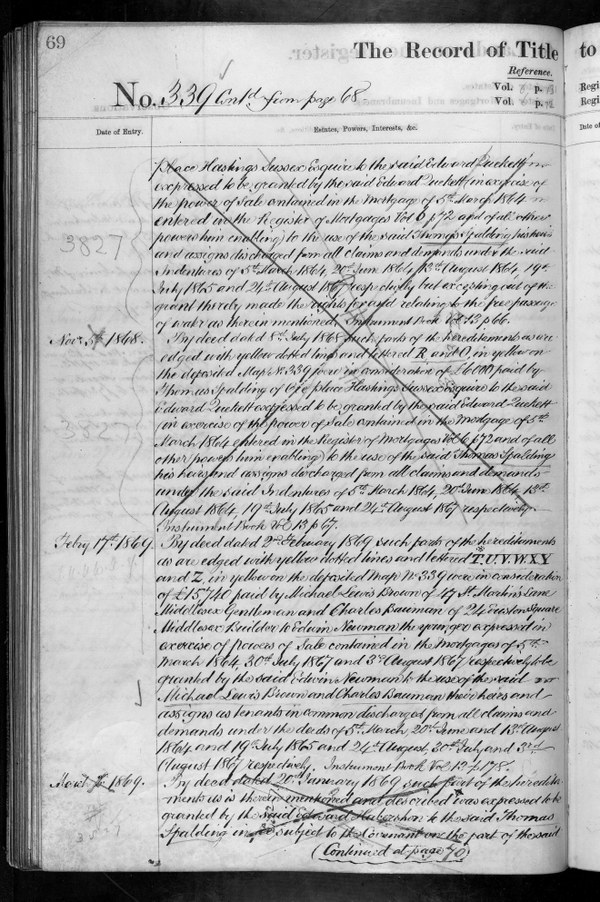 69
The Record of Title
to
Reference.
Vol. p.
Regi
No. 339 Contd from page 68
Vol. p.
Regi
Date of Entry.
Estates, Powers, Interests, &c.
Date of
place Hastings Sussex Esquire to the said Edward Luckett
expressed to be granted by the said Edward Luckett (in exercise of
the power of Sale contained in the Mortgage of 5th March 1864
entered in the Register of Mortgages Vol 6 p 72 and of all other
powers him enabling) to the use of the said Thomas Spalding his heirs
3827
and assigns discharged from all claims and demands under the said
Indentures of 5th March 1864, 20th June 1864, 13th August 1864, 19th
July 1865 and 24th August 1867 respectively but excepting out of the
grant thereby made the rights for and relating to the free passage
of water as therein mentioned. Instrument Book Vol 13 p 66.
Novr 1868.
By deed dated July 1868 such parts of the hereditaments as are
edged with yellow dotted lines and lettered R and O, in yellow on
the deposited Map No. 339 were in consideration of £6000 paid by
Thomas Spalding of place Hastings Sussex Esquire to the said
Edward Luckett expressed to be granted by the said Edward Luckett
3827
(in exercise of the power of Sale contained in the Mortgage of 5th
March 1864 entered in the Register of Mortgages Vol 6 p 72 and of all
other powers him enabling) to the use of the said Thomas Spalding
his heirs and assigns discharged from all claims and demands
under the said Indentures of 5th March 1864, 20th June 1864, 13th
August 1864, 19th July 1865 and 24th August 1867 respectively.
Instrument Book Vol 13 p 67.
Febry 17th 1869.
By deed dated 2nd February 1869 such parts of the hereditaments
as are edged with yellow dotted lines and lettered T. U. V. W. X Y
and Z, in yellow on the deposited Map No 339 were in consideration
of £15,740 paid by Michael Lewis Brown of 47 St Martin's Lane
Middlesex Gentleman and Charles Bauman of 24 Euston Square
Middlesex Builder to Edwin Newman the younger expressed in
exercise of powers of Sale contained in the mortgages of 5th
March 1864, 30th July 1867 and 3rd August 1867 respectively to be
granted by the said Edwin Newman to the use of the said
Michael Lewis Brown and Charles Bauman their heirs and
assigns as tenants in common discharged from all claims and
demands under the deeds of 5th March, 20th June and 13th August
1864 and 19th July 1865 and 24th August, 30th July and 3rd
August 1867 respectively. Instrument Book Vol 13 p 178.
March 1869.
By deed dated 20th January 1869 such part of the heredita
ments as is therein mentioned and described was expressed to be
granted by the said Edward Habershon to the said Thomas
3827
Spalding in fee subject to the Covenant on the part of the said
(Continued at page 70)